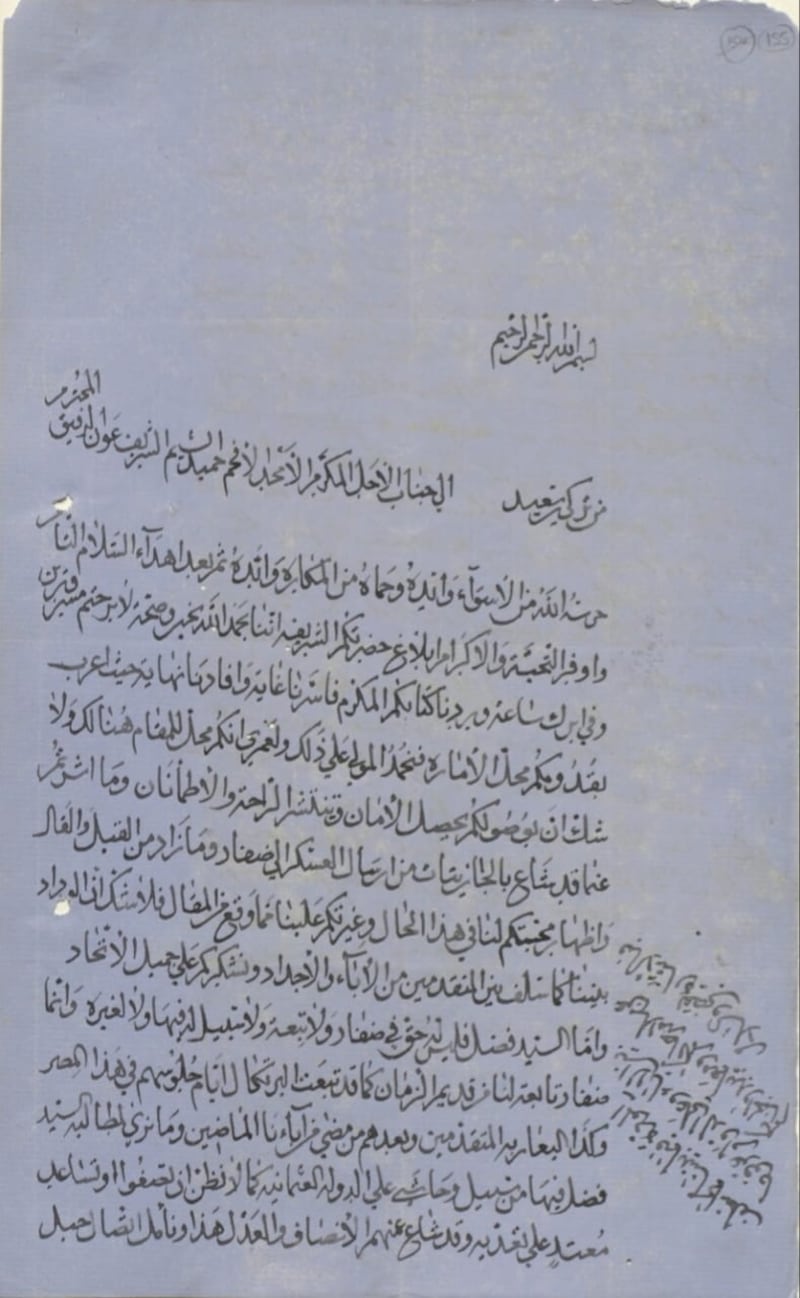 بسم الله الرحمن الرحيم
من تركي بن سعيد الى جناب الاجل المكرم الأمجد الأفخم حميد الشيم الشريف عون الرفيق
المحترم
حرسه الله من الأسوآء وأيده وحماه من المكاره وأبده ثم بعد اهدآء السلام التام
واوفر التحية والاكرام ابلاغ حضرتكم الشريفه اننا بحمد الله بخير وصحة لا برحتم مسرورين
وفي ابرك ساعة ورد بنا كتابكم المكرم فاسرنا غاية وافادنا نهاية حيث اعرب
بقدومكم محل الأماره فنحمد المولى على ذلك ولعمري انكم محل للمقام هنالك ولا
شك ان بوصولكم يحصل الأمان وينتشر الراحة والاطمأنان وما اشرتم
عما قد شاع بالجازيتات من ارسال العسكر الى ضفار وما زاد من القيل والقال
واظهار محبتكم لنا في هذا الحال وغيرتكم علينا مما وقع من المقال فلا شك ان الوداد
بيننا كما سلف بين المتقدمين من الأباء والأجداد ونشكركم على جميل الأتحاد
واما السيد فضل فليس له حق في ضفار ولا تبعة ولا سبيل له فيها ولا لغيره وانما
ضفار تابعة لنا من قديم الزمان كما قد تبعت البرتكال ايام جلوسهم في هذا المصر
وكذا اليعاربه المتقدمين وبعدهم من مضى من آباءنا الماضين وما نرى لمطالبه السيد
فضل فيها من سبيل وحاشى على الدوله العثمانيه كما لا نظن ان تصفوا او تساعد
معتد على تعديه وقد شاع عنهم الأنصاف والعدل هذا ونأمل اتصال حبل